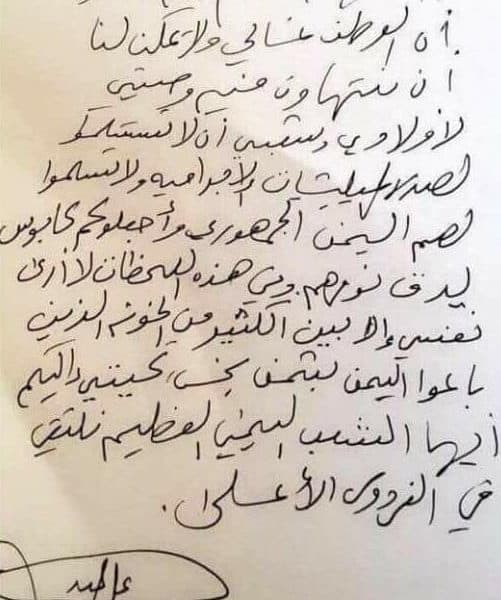 أن الوطن غالي ولا يمكن لنا
أن نتهاون فيه وصيتي
لأولادي وشعبي أن لا تستسلمو
لهذه المليشيات الإجراميه ولا تسلموا
لهم اليمن الجمهوري وأجعلوكم كابوس
ليدق نومهم وفي هذه اللحظات لا أرى
نفسي إلا بين الكثير من الخونه الذين
باعوا اليمن بثمن بخس تحيتي إليكم
أيها الشعب اليمني العظيم نلتقي
في الفردوس الأعلى.